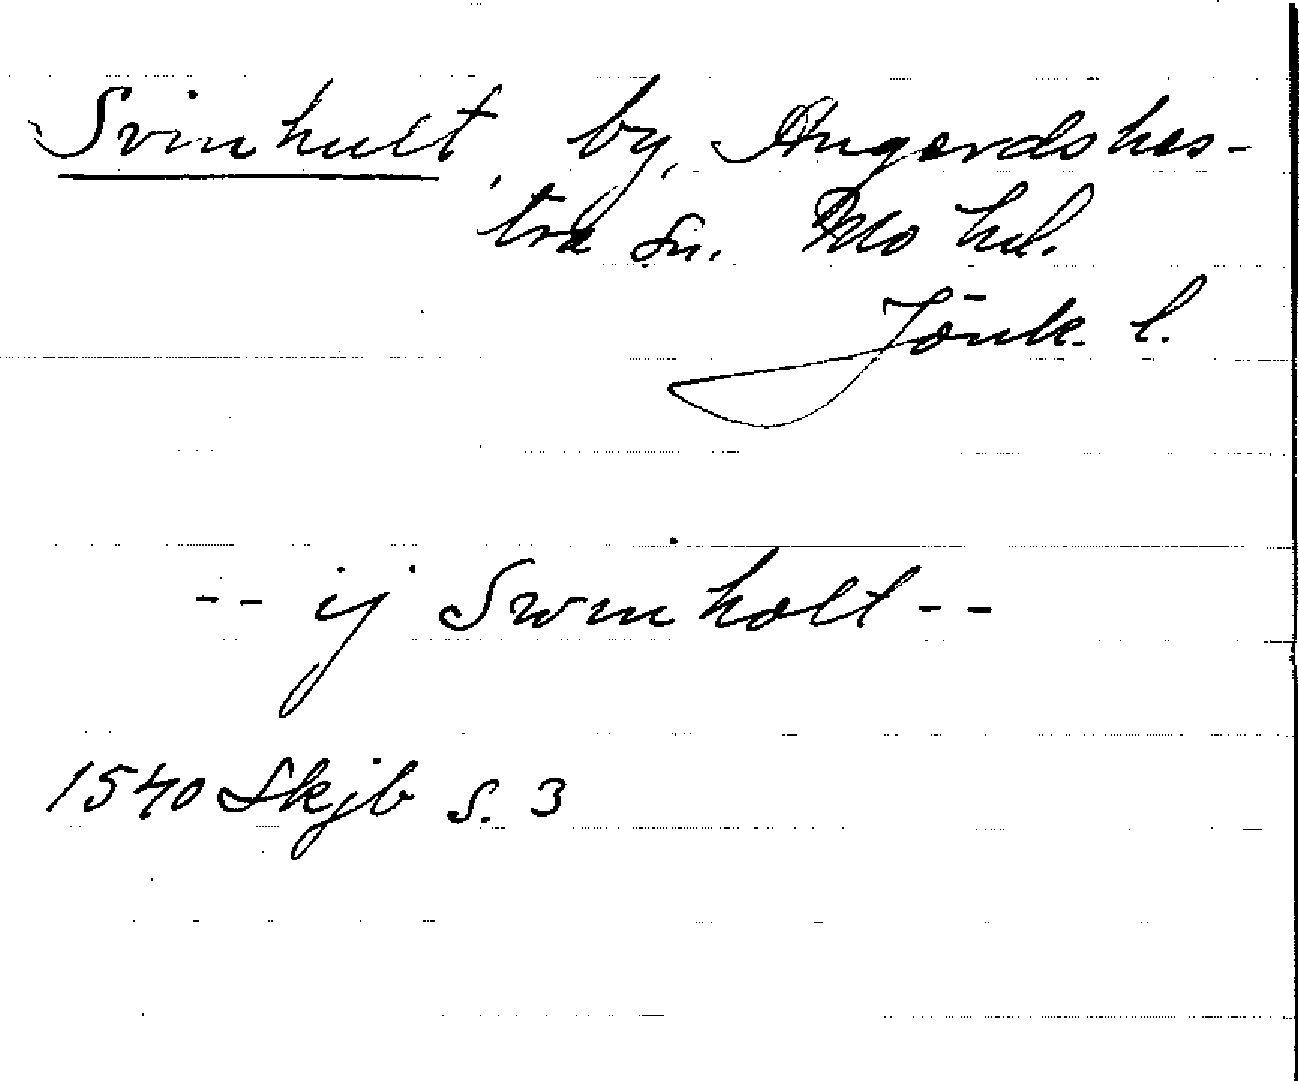 Svinhult, by, Angerdshes-
tra sn. Mo hd.
Jönk. l.
-- ij Swinholt --
1540 Skjb s. 3